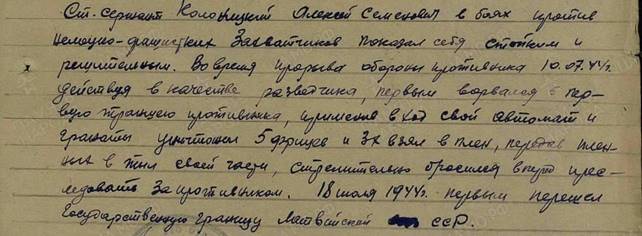 Ст. сержант Колоницкий Алексей Семенович в боях против
немецко-фашистких Захватчиков показал себя стойким и
решительным. Во время прорыва обороны противника 10.07.44г.
действуя в качестве разветчика, первым ворвался в пер-
вую траншею противника, применив в ход свой автомат и
гранаты уничтожил 5 фрицев и 3х взял в плен, передав плен-
ных в тыл своей части, стремительно бросился вперед прес-
ледовать За противником. 18 июля 1944г. первым перешел
Государственную границу Латвийской ССР.